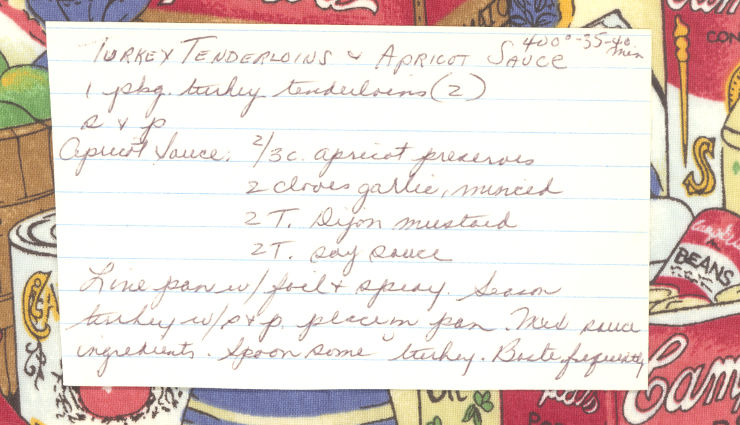 TURKEY TENDERLOINS & APRICOT SAUCE 400°-35-40 min
1 pkg. turkey tenderloins (2)
s & p
Apricot Sauce: 2/3 c. apricot preserves
2 cloves garlic, minced
2 T. Dijon mustard
2 T. soy sauce
Line pan w/ foil + spray. Season
turkey w/ s & p. place in pan. Mix sauce
ingredients. Spoon some turkey. Baste frequently
CON
S
Campbell's
BEANS
Cam